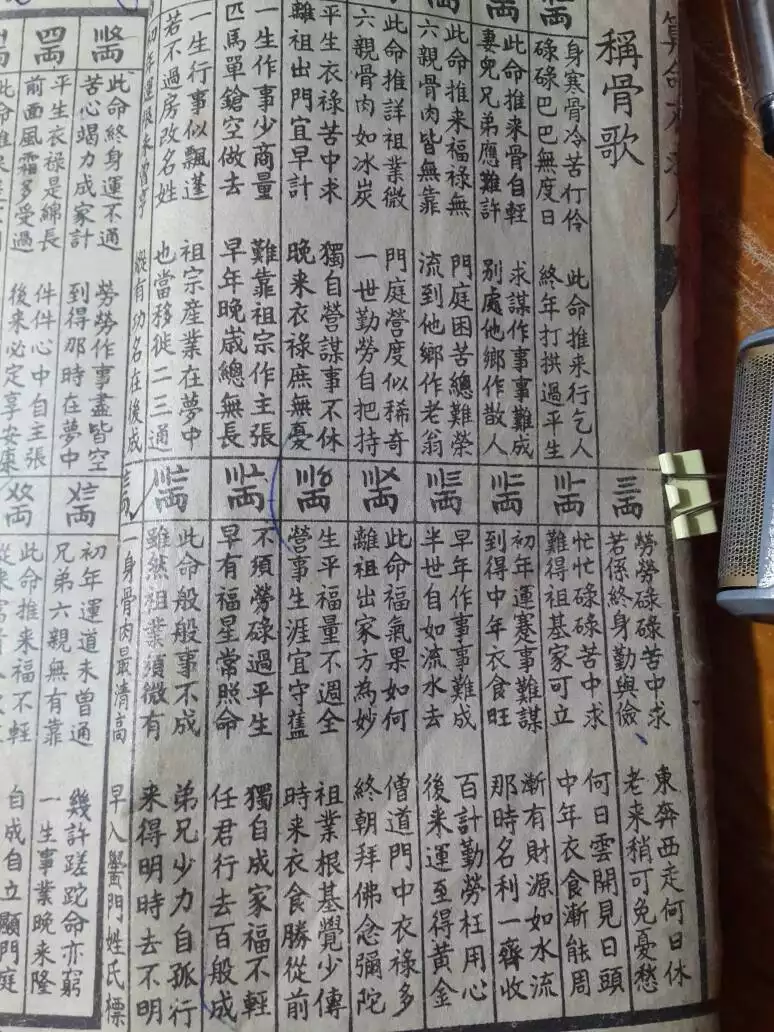 稱骨歌
身寒骨冷苦仃伶 此命推来行乞人
碌碌巴巴無度日 終年打拱過平生
此命推来骨自輕 求謀作事事難成
妻兒兄弟應難許 別處他鄉作散人
此命推来福禄無 門庭困苦總難榮
六親骨肉皆無靠 流到他鄉作老翁
此命推詳祖業微 門庭營度似稀奇
六親骨肉如冰炭 一世勤勞自把持
平生衣禄苦中求 獨自營謀事不休
離祖出門宜早計 晚来衣禄庶無憂
一生作事少商量 難靠祖宗作主張
匹馬單鎗空做去 早年晚歲總無長
一生行事似飄蓬 祖宗產業在夢中
若不過房改名姓 也當移徙二三通
初年運限未曾亨 縱有功名在後成
三兩
勞勞碌碌苦中求 東奔西走何日休
若係終身勤與儉 老来稍可免憂愁
〣一兩
忙忙碌碌苦中求 何日雲開見日頭
難得祖基家可立 中年衣食漸能周
〣二兩
初年運蹇事難謀 漸有財源如水流
到得中年衣食旺 那時名利一齊收
〣三兩
早年作事事難成 百計勤勞枉用心
半世自如流水去 後来運至得黃金
〣〤兩
此命福氣果如何 僧道門中衣禄多
離祖出家方為妙 終朝拜佛念彌陀
〣〥兩
生平福量不週全 祖業根基覺少傳
營事生涯宜守舊 時来衣食勝從前
〣〦兩
不須勞碌過平生 獨自成家福不輕
早有福星常照命 任君行去百般成
〣〧兩
此命般般事不成 弟兄少力自孤行
雖然祖業須微有 来得明時去不明
一身骨肉最清高 早入黌門姓氏標
〣〩兩
此命終身運不通 勞勞作事盡皆空
苦心竭力成家計 到得那時在夢中
四兩
平生衣禄是綿長 件件心中自主張
前面風霜多受過 後来必定享安康
〤〨兩
初年運道未曾通 幾許蹉跎命亦窮
兄弟六親無有靠 一生事業晚来隆
〤〩兩
此命推来福不輕 自成自立顯門庭